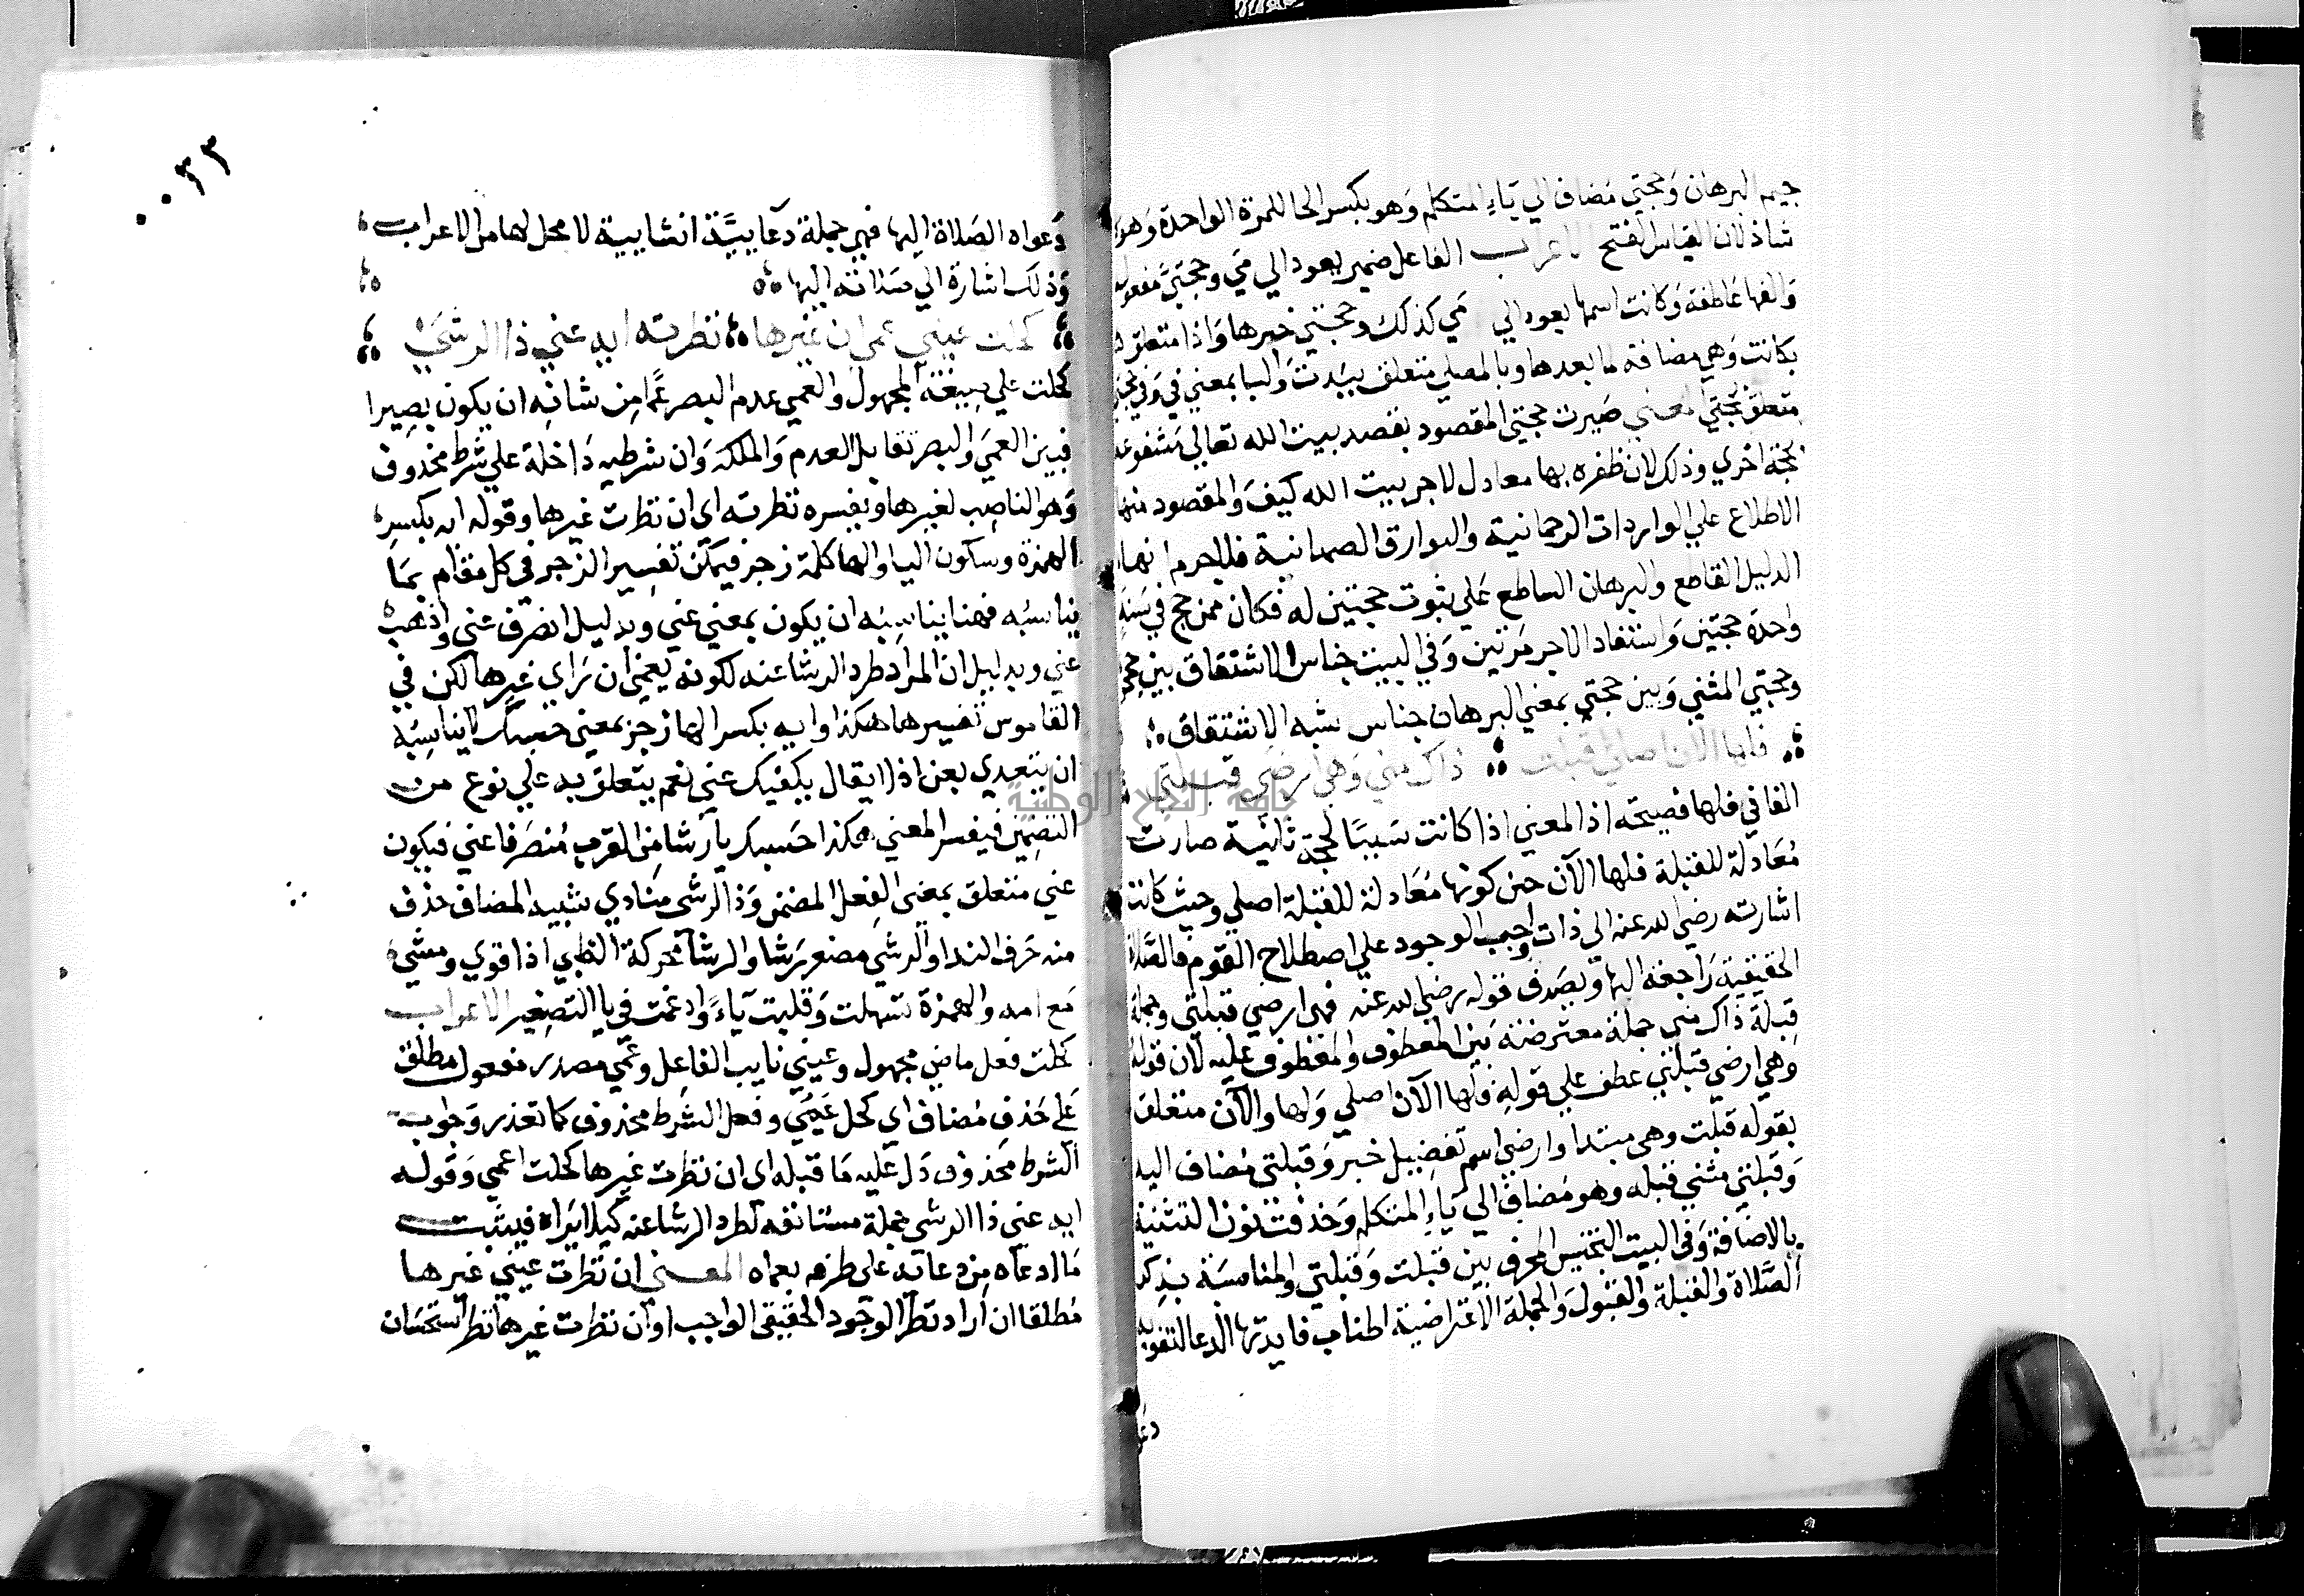 جيم البرهان وحجتي مضاف الي ياء المتكلم وهو بكسر الحا للمرة الواحدة وهو
شاذ لان القياس الفتح الاعراب الفاعل ضمير يعود الي مي وحجتي مفعول
والفاء عاطفة وكانت اسمها يعود الي مي كذلك وحجتي خبرها واذا متعلق
بكانت وهي مضافة لما بعدها وبالمصلي متعلق والبا بمعني في
متعلق بحجتي المعني صيرت حجتي المقصود بقصد بيت الله تعالي مشفوعة
بحجة اخري وذلك لان ظفره بها معادل لاجر بيت الله كيف والمقصود منها
الاطلاع علي الواردات الرحمانية والبوارق الصمدانية فلا جرم انها
الدليل القاطع والبرهان الساطع علي ثبوت حجتين له فكان ممن حج في سنة
واحدة حجتين واستفاد الاجر مرتين وفي البيت جناس الاشتقاق بين
وحجتي المثني وبين حجتي بمعني البرهان جناس شبه الاشتقاق
فلها الان اصلي قبلت ذاك مني وهي ارضي قبلتي
الفا في فلها فصيحة اذ المعني اذا كانت سببا لحجة ثانية صارت
معادلة للقبلة فلها الآن حين كونها معادلة للقبلة اصلي وحيث كانت
اشارته رضي الله عنه الي ذات واجب الوجود علي اصطلاح القوم فالصلاة
الحقيقية راجعة اليها ويصدق قوله رضي الله عنه فهي ارضي قبلتي وجملة
قبلة ذاك مني جملة معترضة بين المعطوف والمعطوف عليه لان قوله
وهي ارضي قبلتي عطف علي قوله فلها الآن اصلي ولها والآن متعلق
بقوله قبلت وهي مبتدا وارضي اسم تفضيل خبر وقبلتي مضاف اليه
وقبلتي مثني قبله وهو مضاف الي ياء المتكلم وحذفت نون التثنية
بالاضافة وفي البيت التجنيس المحرف بين قبلت وقبلتي والمناسبة بذكر
الصلاة والقبلة والقبول والجملة الاعتراضية اطناب فايدتها الدعا
٠٠٣٣
دعواه الصلاة اليها فهي جملة دعاييَّة انشاييية لا محل لها من الاعراب
وذلك اشارة الي صلاته اليها
كحلت عيني عمي ان غيرها نظرته ايه عني ذا الرشي
كحلت علي صيغة المجهول والعمي عدم البصر عما من شانه ان يكون بصيرا
فبين العمي والبصر تقابل العدم والملكة وان شرطيه داخلة علي شرط محذوف
وهو الناصب لغيرها ويفسره نظرته اي ان نظرت غيرها وقوله ايه بكسر
الهمزة وسكون اليا والها كلمة زجر فيمكن تفسير الزجر في كل مقام بما
يناسبه فهنا يناسبه ان يكون بمعني عني وبدليل انصرف عني واذهب
عني وبدليل ان المراد طرد الرشا عنه لكونه يعمي ان راي غيرها لكن في
القاموس تفسيرها هكذا وايه بكسر الها زجر بمعني حسبك لا يناسبه
ان يتعدي بعن اذ لا يقال يكفيك عني نعم يتعلق به علي نوع من
التضمين فيفسر المعني هكذا حسبك يا رشا من القرب منصرفا عني فيكون
عني متعلق بمعني الفعل المضمن وذا الرشي منادي شبيه المضاف حذف
منه حرف الندا والرشي مصغر رشا والرشا محركة الظبي اذا قوي ومشي
مع امه والهمزة تسهلت وقلبت ياء وادغمت في يا التصغير الاعراب
كحلت فعل ماض مجهول وعيني نايب الفاعل وعمي مصدر مفعول مطلق
علي حذف مضاف اي كحل عمي وفعل الشرط محذوف كما تقدر وجواب
الشرط محذوف دل عليه ما قبله اي ان نظرت غيرها كحلت اعمي وقوله
ايه عني ذا الرشي جملة مستانفه لطرد الرشا عنه كيلا يراه فيثبت
ما ادعاه من دعائه علي طرفه بعماه المعني ان نظرت عيني غيرها
مطلقا ان اراد نظر الوجود الحقيقي الواجب او ان نظرت غيرها نظر استحسان
جامعة النجاح الوطنية